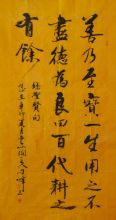 善乃至寶一生用之不
盡德為良田百代耕之
有餘
錄聖賢句